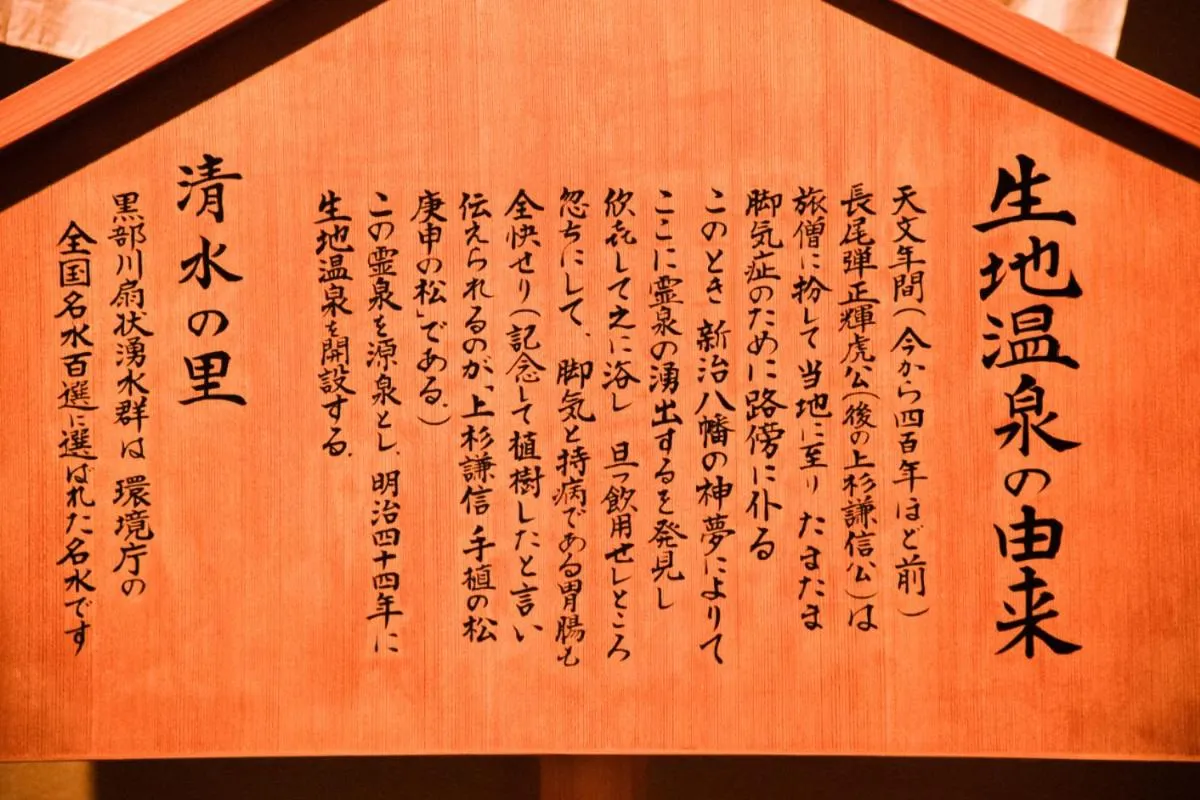 生地温泉の由来
天文年間(今から四百年ほど前)
長尾弾正輝虎公(後の上杉謙信公)は
旅僧に扮して当地に至り たまたま
脚気症のために路傍に仆る
このとき 新治八幡の神夢によりて
ここに霊泉の湧出するを発見し
欣㐂して之に浴し 且つ飲用せしところ
忽ちにして、脚気と持病である胃腸も
全快せり(記念して植樹したと言い
伝えられるのが、「上杉謙信 手植の松
庚申の松」である。)
この霊泉を源泉とし、明治四十四年に
生地温泉を開設する。
清水の里
黒部川扇状湧水群は 環境庁の
全国名水百選に選ばれた名水です